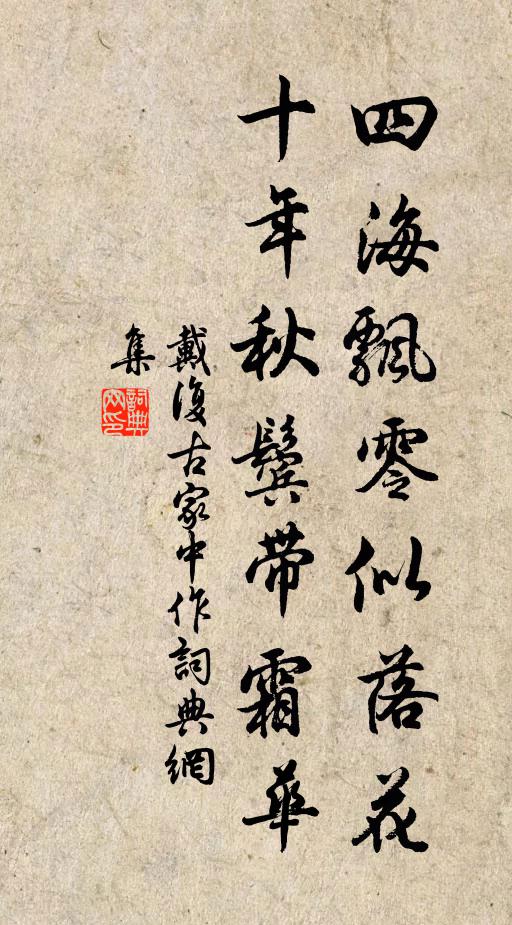 四海飄零似落花
十年秋鬢帶霜華
戴復古家中作詞典網
集
詞典網印